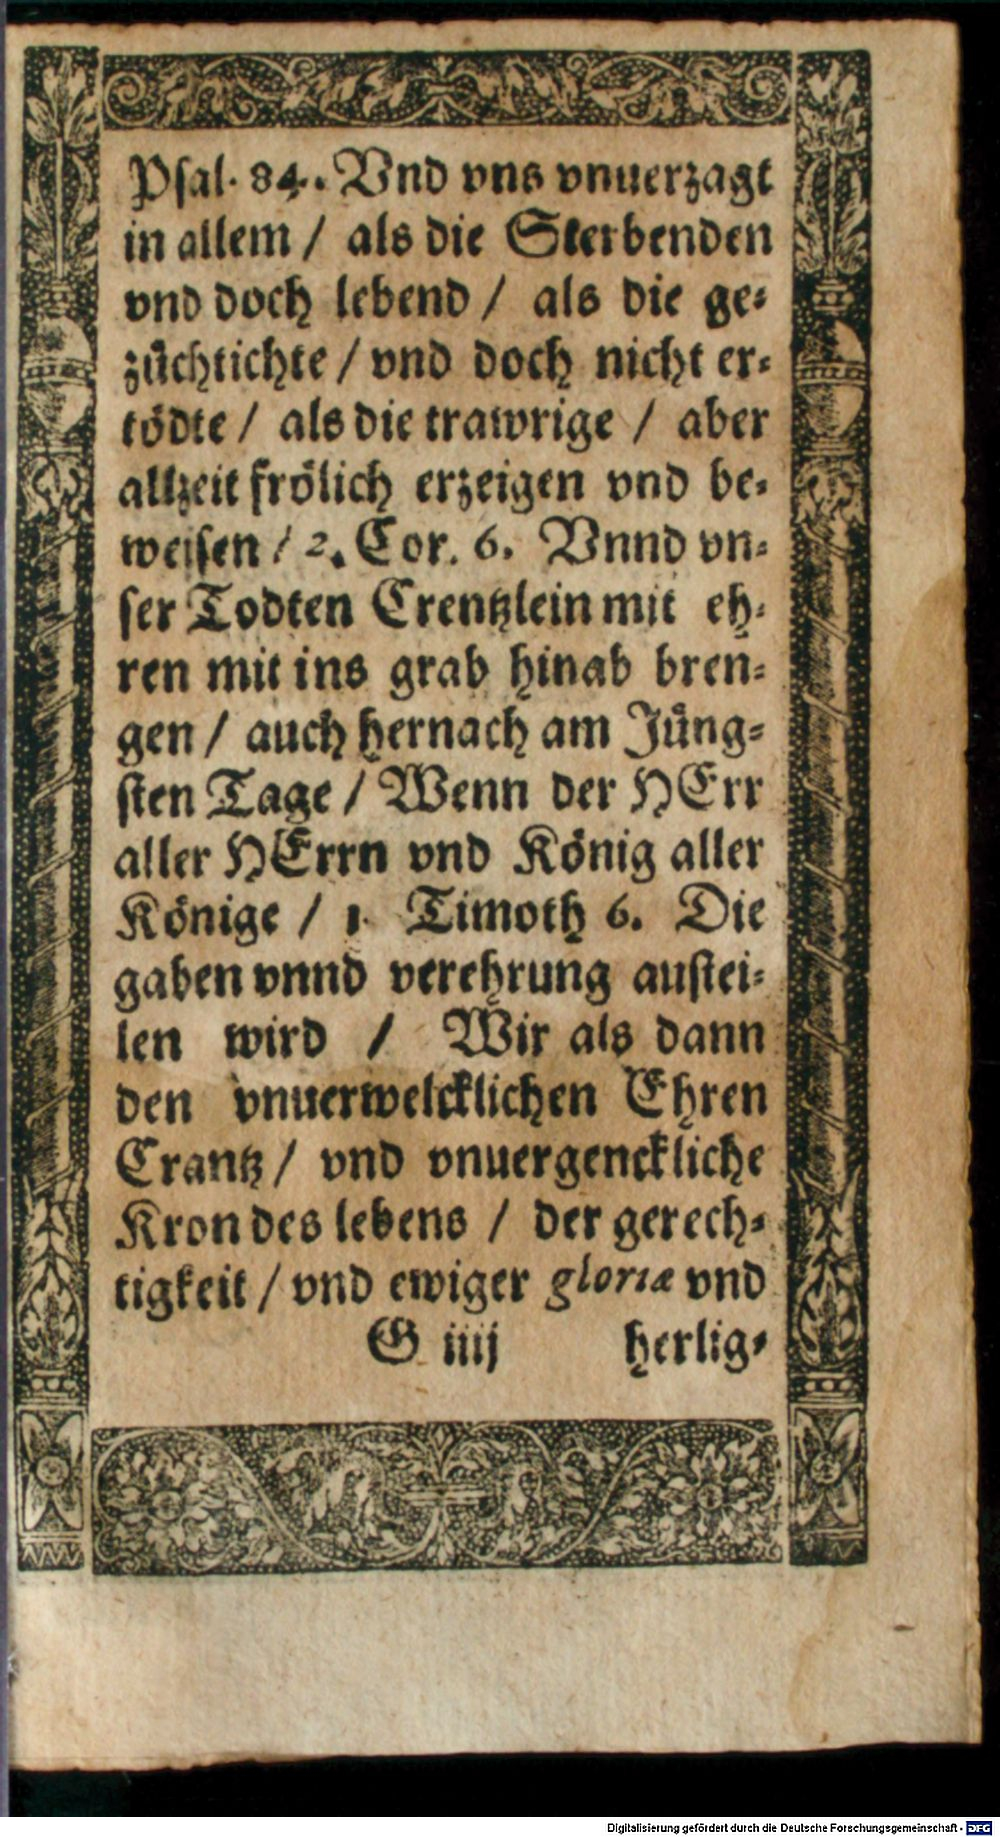 Psal. 84. Vnd vns vnuerzagt
in allem / als die Sterbenden
vnd doch lebend / als die ge⸗
zuͤchtichte / vnd doch nicht er⸗
toͤdte / als die trawrige / aber
allzeit froͤlich erzeigen vnd be⸗
weisen / 2. Cor. 6. Vnnd vn⸗
ser Todten Crentzlein mit eh⸗
ren mit ins grab hinab bren⸗
gen / auch hernach am Juͤng⸗
sten Tage / Wenn der HErr
aller HErrn vnd Koͤnig aller
Koͤnige / 1. Timoth 6. Die
gaben vnnd verehrung austei⸗
len wird / Wir als dann
den vnuerwelcklichen Ehren
Crantz / vnd vnuergenckliche
Kron des lebens / der gerech⸗
tigkeit / vnd ewiger gloriæ vnd
G iiij herlig⸗
Digitalisierung gefördert durch die Deutsche Forschungsgemeinschaft - DFG